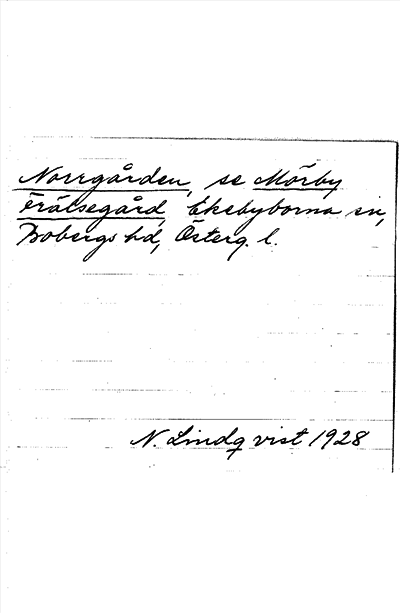 Norrgården, se Mörby
Frälsegård, Ekebyborna sn,
Bobergs hd, Österg. l.
N. Lindqvist 1928